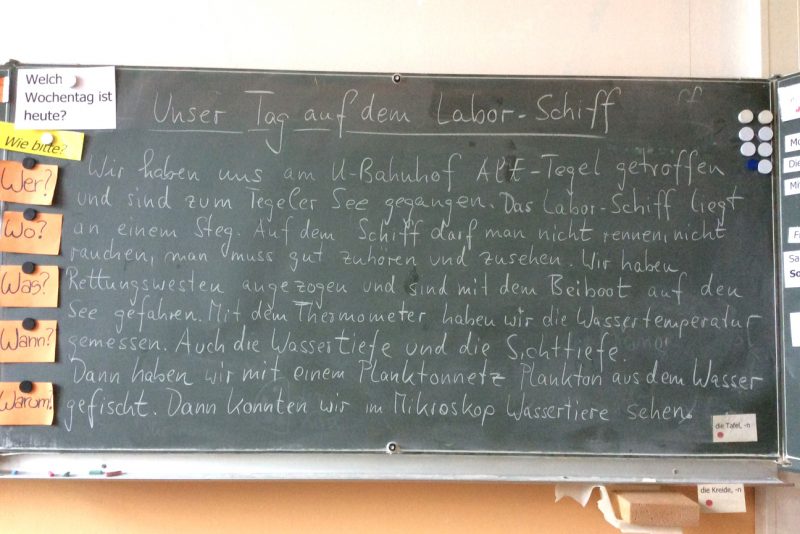 Welch
Wochentag ist
heute?
Wie bitte?
Wer?
Wo?
Was?
Wann?
Warum?
Unser Tag auf dem Labor-Schiff
Wir haben uns am U-Bahnhof Alt-Tegel getroffen
und sind zum Tegeler See gegangen. Das Labor-Schiff liegt
an einem Steg. Auf dem Schiff darf man nicht rennen, nicht
rauchen, man muss gut zuhören und zusehen. Wir haben
Rettungswesten angezogen und sind mit dem Beiboot auf den
See gefahren. Mit dem Thermometer haben wir die Wassertemperatur
gemessen. Auch die Wassertiefe und die Sichttiefe.
Dann haben wir mit einem Planktonnetz Plankton aus dem Wasser
gefischt. Dann konnten wir im Mikroskop Wassertiere sehen.
die Tafel, -n
die Kreide, -n
Mo
Die
Mi
Sa
So